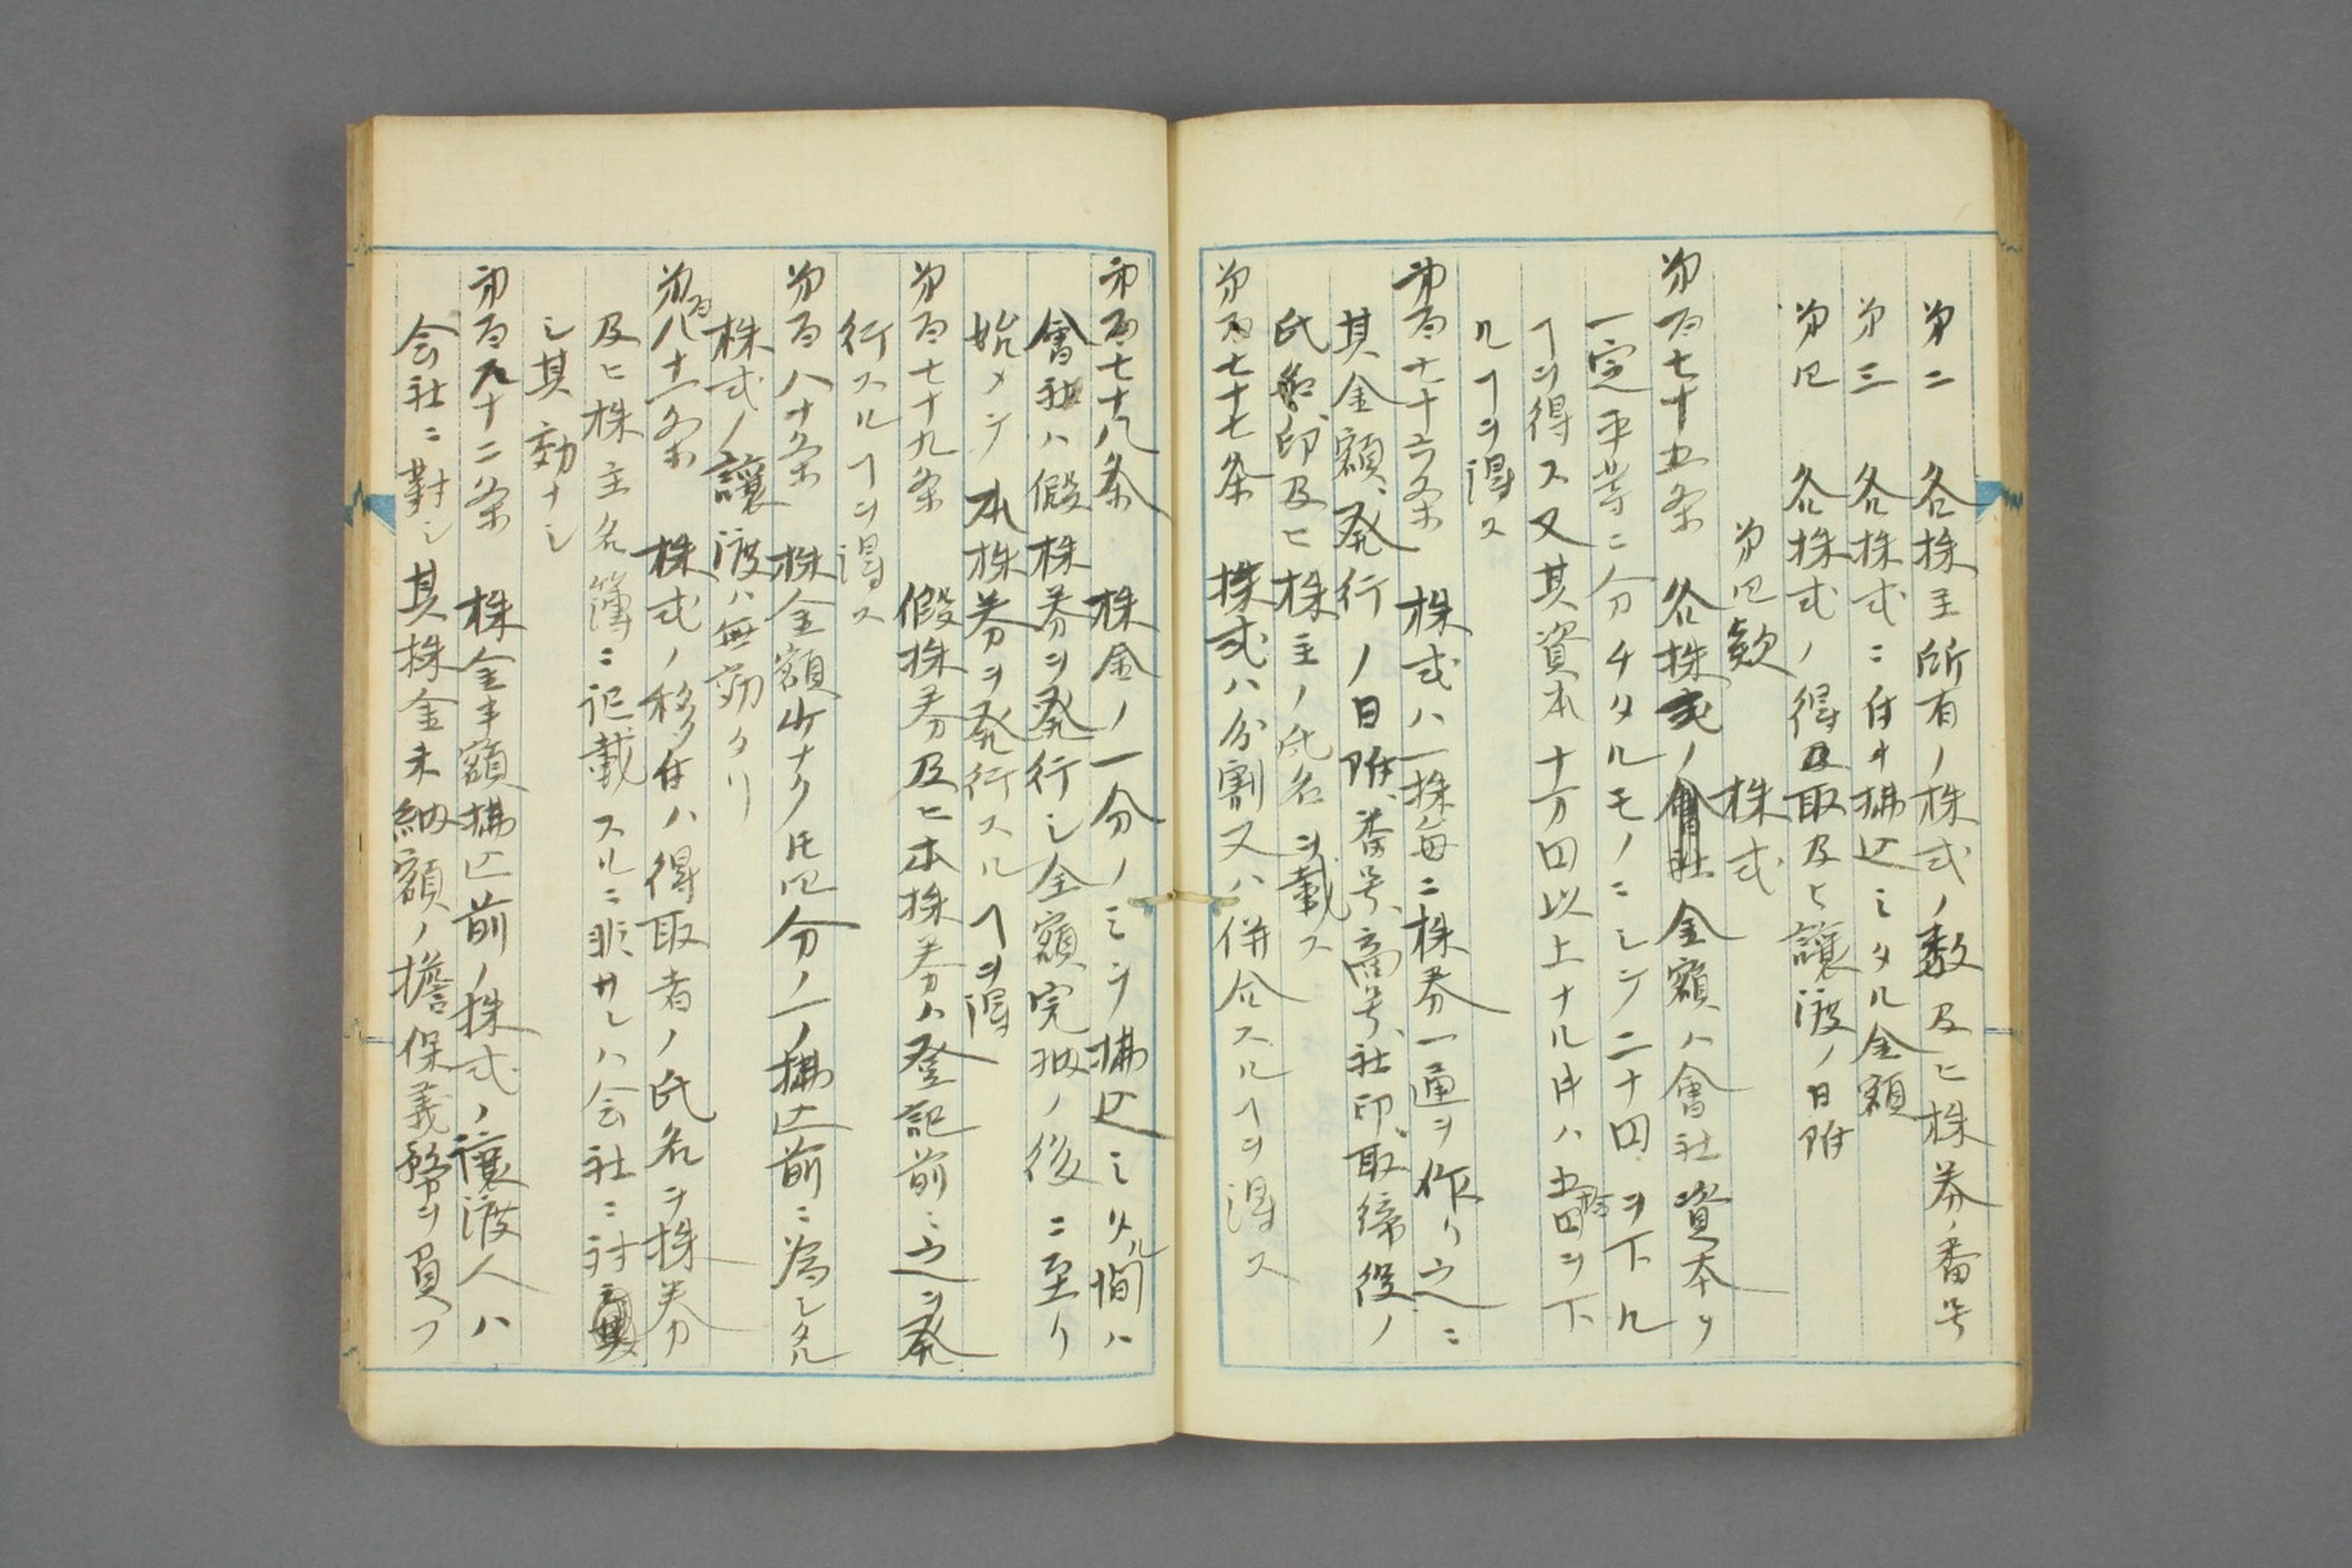 第二　各株主所有ノ株式ノ数及ヒ株券ノ番号
第三　各株式ニ付キ拂込ミタル金額
第四　各株式ノ得取及ヒ讓渡ノ日附
第四欵　株式
第百七十五条　各株式ノ金額ハ會社資本ヲ
一定平等ニ分チタルモノニシテ二十円ヲ下ル
ヿヲ得ス又其資本十万円以上ナル時ハ五拾円ヲ下
ルヿヲ得ス
第百七十六条　株式ハ一株毎ニ株券一通ヲ作リ之ニ
其金額、発行ノ日附、番号、商号、社印、取締役ノ
氏名、印及ヒ株主ノ氏名ヲ載ス
第百七十七条　株式ハ分割又ハ併合スルヿヲ得ス
第百七十八条　株金ノ一分ノミヲ拂込ミタル間ハ
會社ハ假株券ヲ発行シ全額完納ノ後ニ至リ
始メテ本株券ヲ発行スルヿヲ得
第百七十九条　假株券及ヒ本株券ハ登記前ニ之ヲ発
行スルヿヲ得ス
第百八十条　株金額少ナクトモ四分ノ一ノ拂込前ニ為シタル
株式ノ讓渡ハ無効タリ
第百八十一条　株式ノ移付ハ得取者ノ氏名ヲ株券
及ヒ株主名簿ニ記載スルニ非サレハ会社ニ対
シ其効ナシ
第百八十二条　株金半額拂込前ノ株式ノ讓渡人ハ
会社ニ對シ其株金未納額ノ擔保義務ヲ負フ